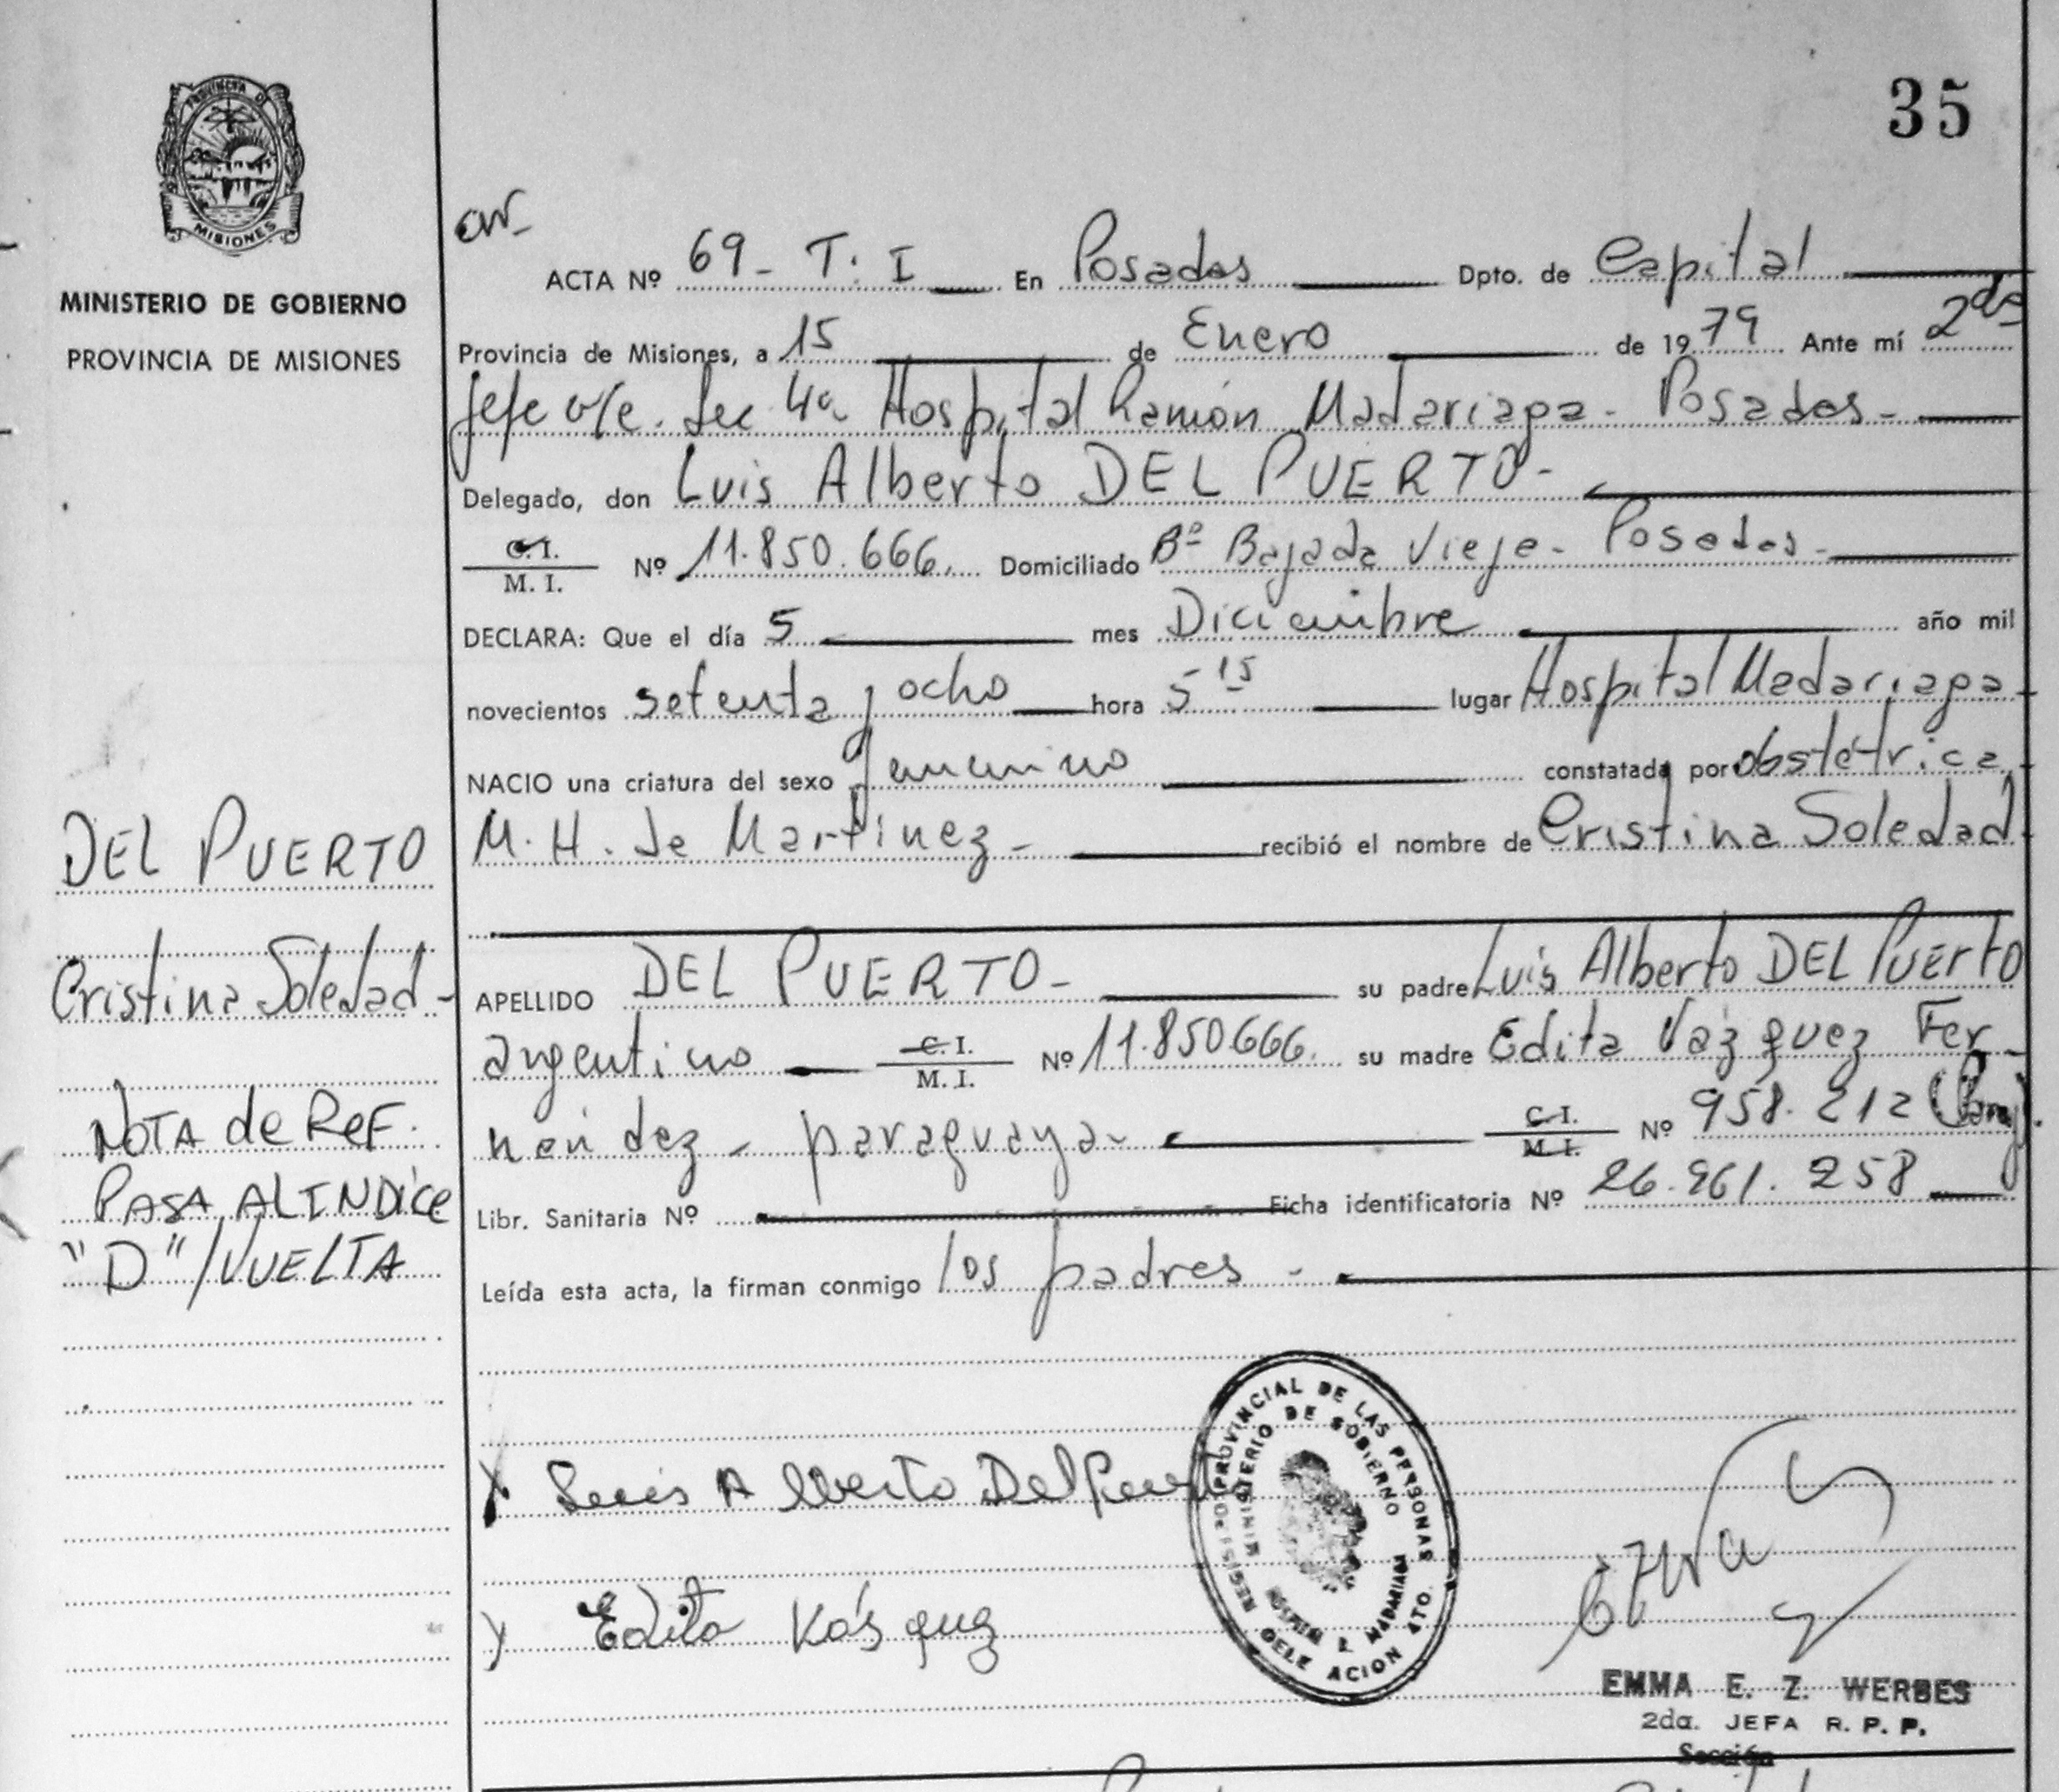 35
PROVINCIA D
MISIONES
MINISTERIO DE GOBIERNO
PROVINCIA DE MISIONES
DEL PUERTO
Cristina Soledad -
NOTA de REF.
PASA AL INDICE
"D" / VUELTA
ACTA Nº 69 - T. I En Posadas Dpto. de Capital
Provincia de Misiones, a 15 de Enero de 1979 Ante mí 2da
Jefe Sec 4a Hospital Ramón Madariaga - Posadas -
Delegado, don Luis Alberto DEL PUERTO -
C. I. / M. I. Nº 11.850.666. Domiciliado Bº Bajada Vieja - Posadas -
DECLARA: Que el día 5 mes Diciembre año mil
novecientos setenta y ocho hora 5 15 lugar Hospital Madariaga -
NACIO una criatura del sexo femenino constatada por obstétrica
M. H. de Martínez - recibió el nombre de Cristina Soledad
APELLIDO DEL PUERTO - su padre Luis Alberto DEL PUERTO
argentino C. I. / M. I. Nº 11.850.666. su madre Edita Vázquez Fer
nández - paraguaya - C. I. / M. I. Nº 958.212 (Parag).
Libr. Sanitaria Nº Ficha identificatoria Nº 26.961.258
Leída esta acta, la firman conmigo los padres -
Luis Alberto Del Puerto
Edita Vásquez
REGISTRO PROVINCIAL DE LAS PERSONAS
MINISTERIO DE GOBIERNO
HOSPITAL R. MADARIAGA
DELEGACION 4TO.
EMMA E. Z. WERBES
2da. JEFA R. P. P.
Sección